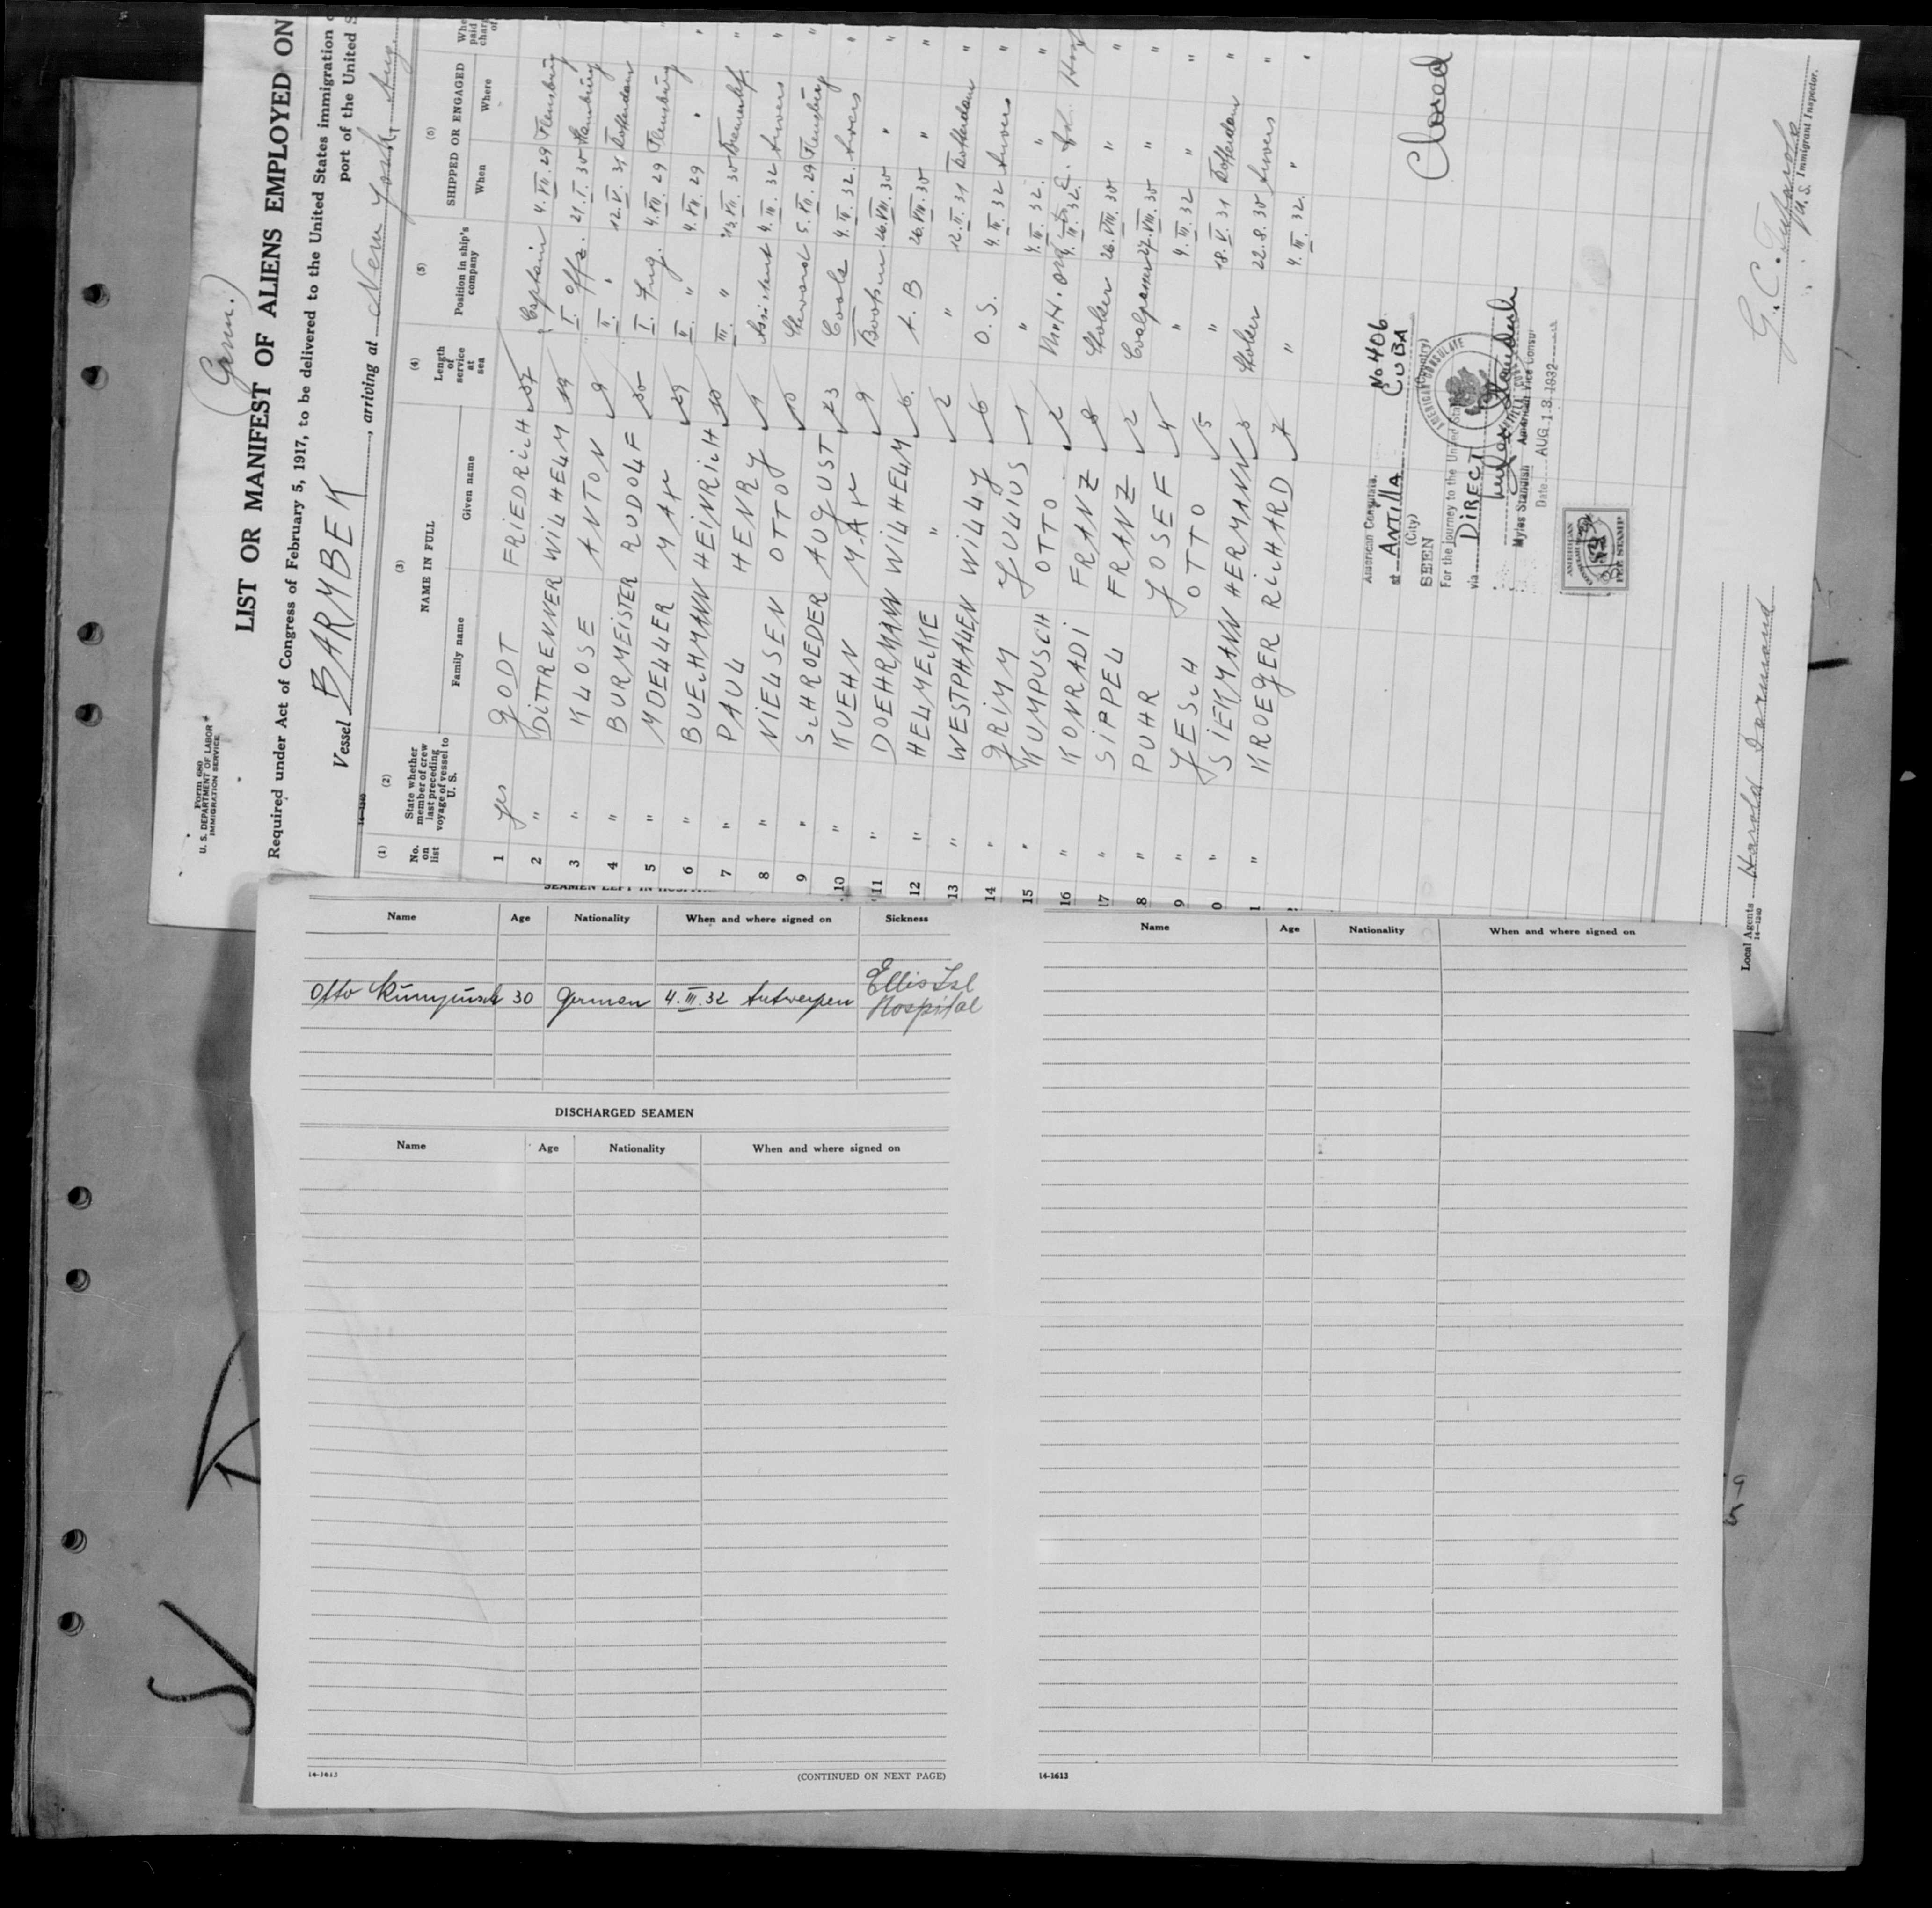 Form 680
U. S. DEPARTMENT OF LABOR
IMMIGRATION SERVICE
(Germ.)
LIST OR MANIFEST OF ALIENS EMPLOYED ON
Required under Act of Congress of February 5, 1917, to be delivered to the United States immigration
port of the United
Vessel BARMBEK, arriving at New York, Aug.
14-1240
(1) (2) (3) (4) (5) (5)
No. on list
State whether member of crew last preceding voyage of vessel to U. S.
NAME IN FULL
Family name Given name
Length of service at sea
Position in ship's company
SHIPPED OR ENGAGED
When Where
1 yes GODT FRIEDRICH 37 Captain 4. VII. 29 Flensburg
2 " DITTRENNER WILHELM 19 I. Offz. 21. I. 30 Hamburg
3 " KLOSE ANTON 9 II. " 12. V. 31 Rotterdam
4 " BURMEISTER RUDOLF 30 I. Eng. 4. VII. 29 Flensburg
5 " MOELLER MAX 29 II. " 4. VII. 29 "
6 " BUECHMANN HEINRICH 10 III. "
7 " PAUL HENRY 1 Assistent 4. III. 32 Anvers
8 " NIELSEN OTTO 10 Steward 5. VII. 29 Flensburg
9 " SCHROEDER AUGUST 23 Cook 4. III. 32. Anvers
10 " KUEHN MAX 9 Bootsm 26. VIII. 30 "
11 " DOEHRMANN WILHELM 6. A. B 26. VIII. 30 "
12 " HELMECKE " 2 " 12. II. 31 Rotterdam
13 " WESTPHALEN WILLY 6 O. S. 4. III. 32 Anvers
14 " GRIMM JULIUS 1 " 4. III. 32. "
15 " KUMPUSCH OTTO 2 4. III. 32.
16 " KONRADI FRANZ 8 Stoker 26. VIII. 30 "
17 " SIPPEL FRANZ 2 Coalpasser 27. VIII. 30 "
8 " PUHR JOSEF 4 " 4. III. 32 "
9 " JESCH OTTO 5 " 18. V. 31 Rotterdam
0 " SIEKMANN HERMANN 3 Stoker 22. 8. 30 Anvers
1 " KROEGER RICHARD 7 " 4. III. 32. "
American Consulate,
No 406
at ANTILLA CUBA
(City) (Country)
SEEN
For the journey to the United States
via DIRECT
AMERICAN CONSULATE
Myles Standish
American Vice Consul
Date AUG 13 1932
AMERICAN
FEE STAMP
Closed
U. S. Immigrant Inspector.
Local Agents
14-1240
Name Age Nationality When and where signed on Sickness
Otto Kumpusch 30 German 4. III. 32 Antwerpen Ellis Isl
Hospital
DISCHARGED SEAMEN
Name Age Nationality When and where signed on
14-1613
(CONTINUED ON NEXT PAGE)
Name Age Nationality When and where signed on
14-1613